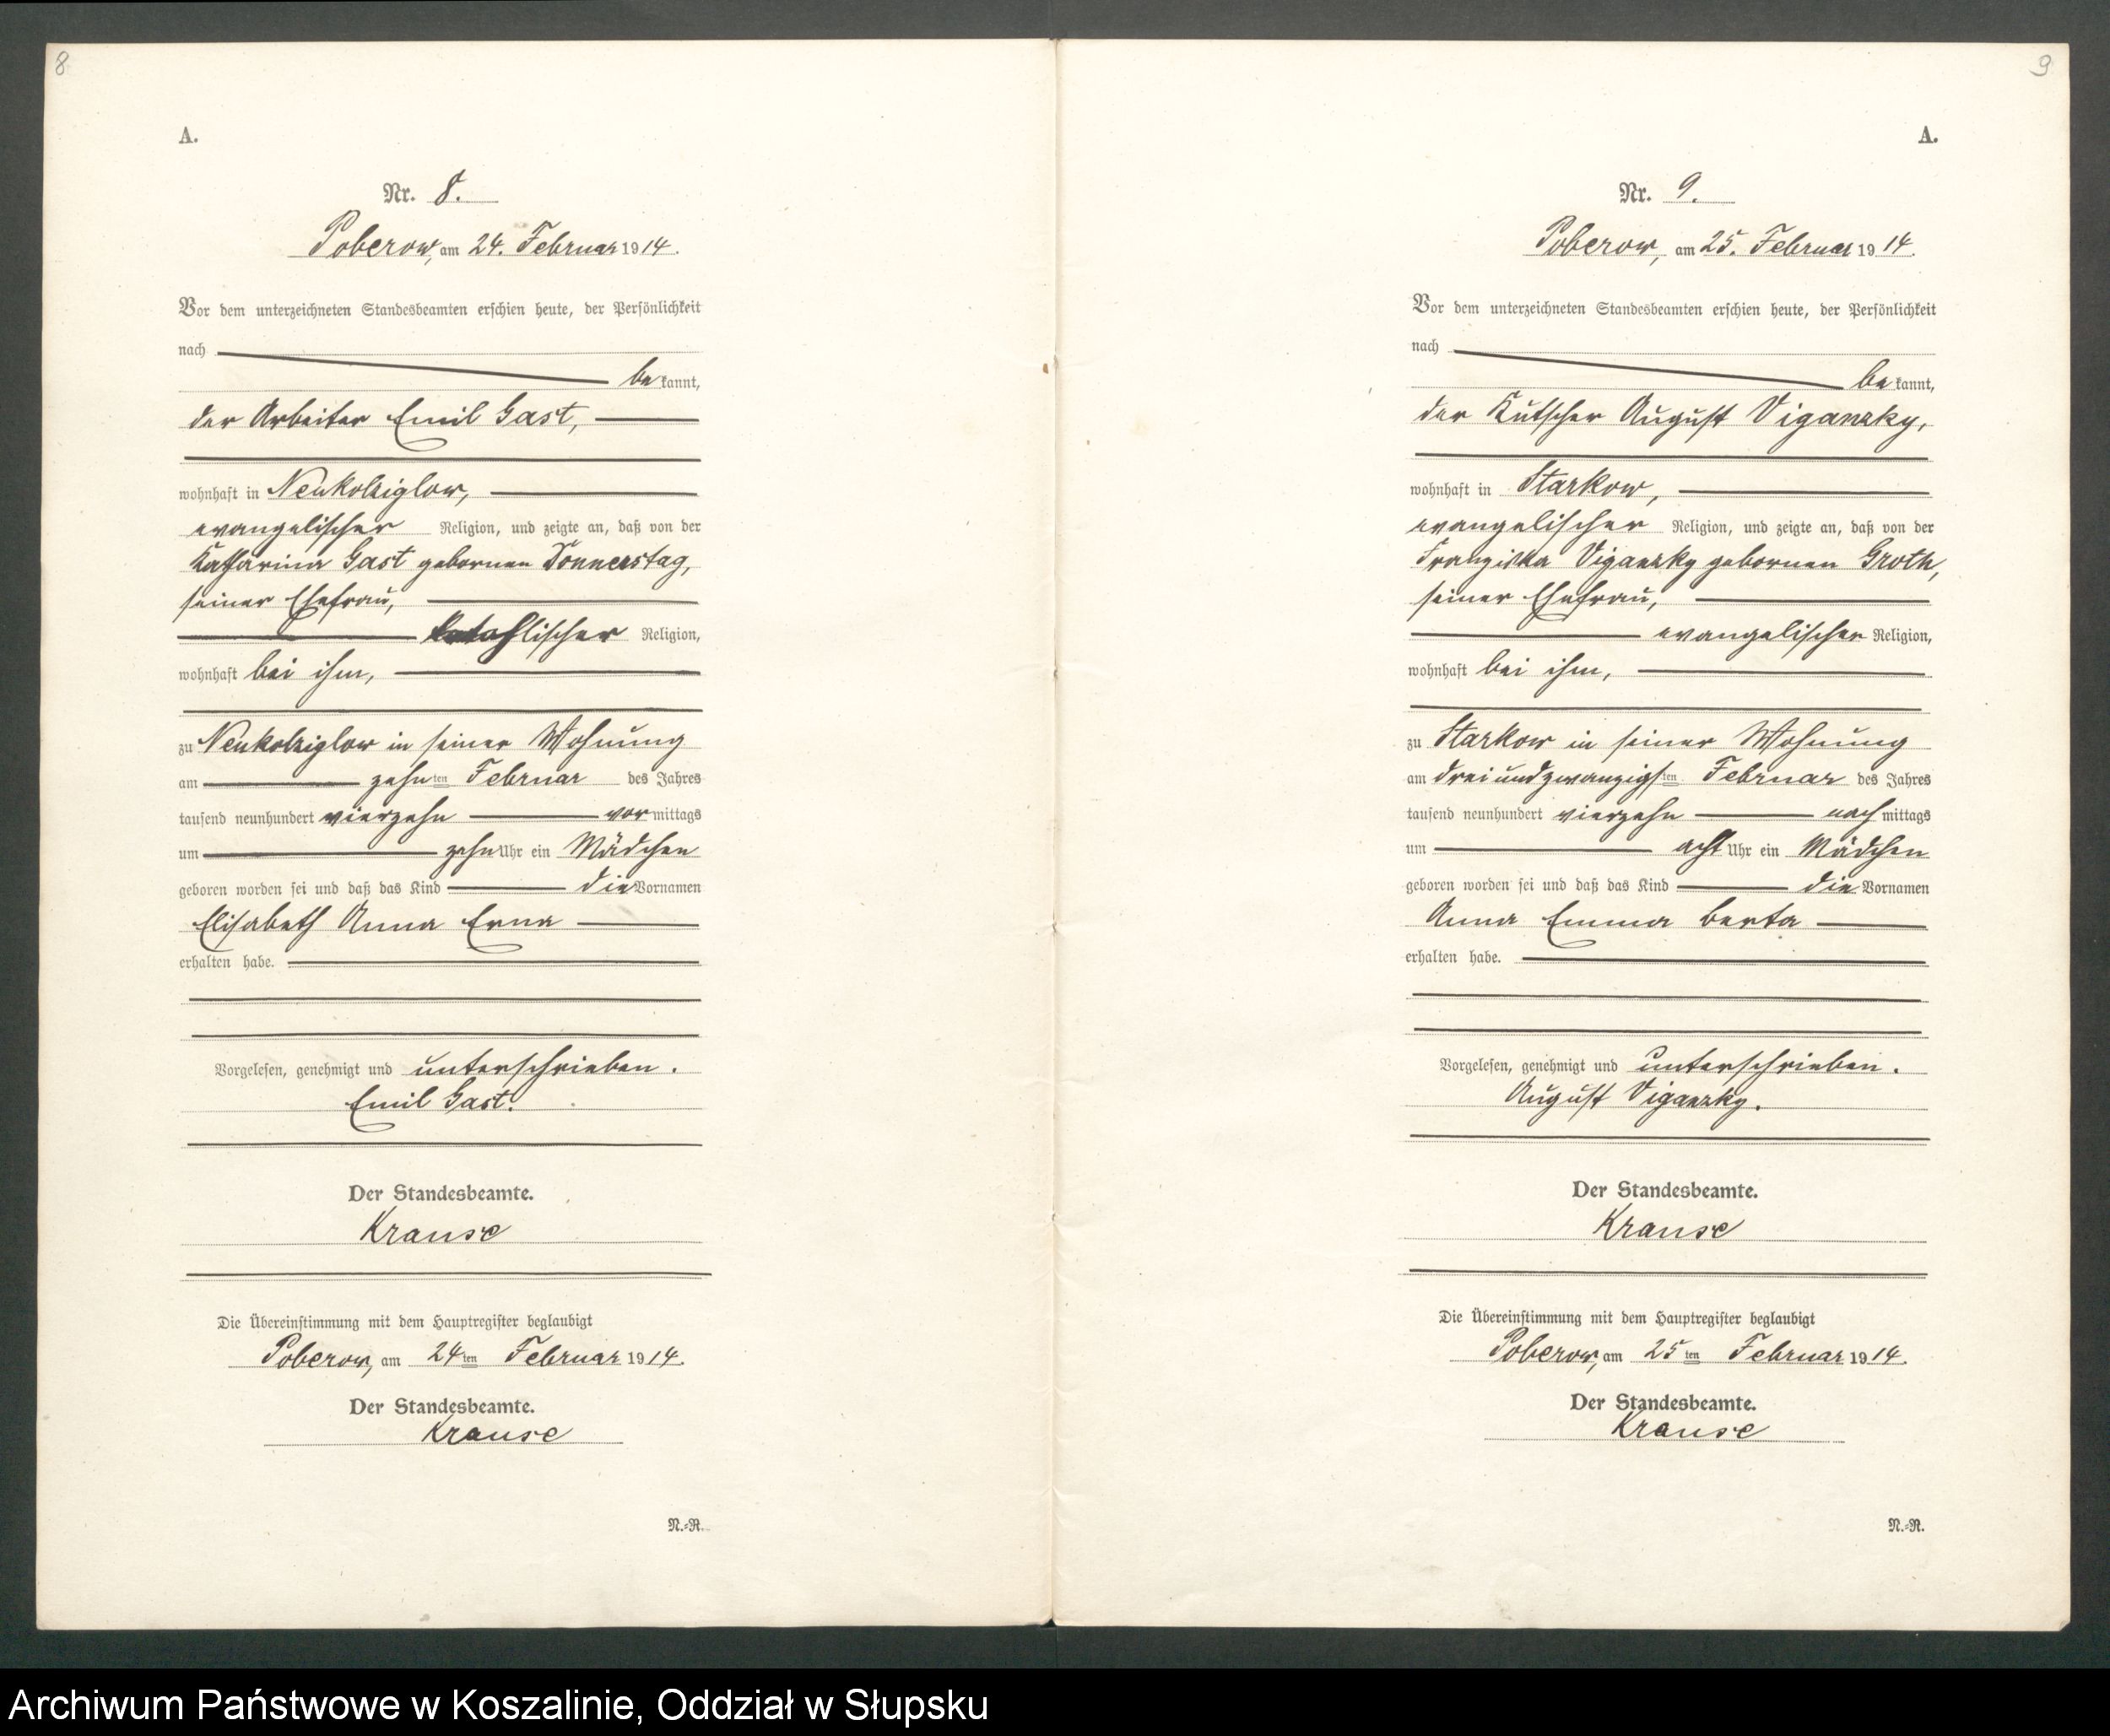 8
A.
Nr. 8.
Poberow, am 24. Februar 1914.
Vor dem unterzeichneten Standesbeamten erschien heute, der Persönlichkeit
nach
be kannt,
der Arbeiter Emil Gast,
wohnhaft in Neukolziglow,
evangelischer Religion, und zeigte an, daß von der
Katharina Gast gebornen Donnerstag,
seiner Ehefrau,
Religion,
wohnhaft bei ihm,
zu Neukolziglow in seiner Wohnung
am zehn ten Februar des Jahres
tausend neunhundert vierzehn vor mittags
um zehn Uhr ein Mädchen
geboren worden sei und daß das Kind die Vornamen
Elisabeth Anna Erna
erhalten habe.
Vorgelesen, genehmigt und unterschrieben.
Emil Gast.
Der Standesbeamte.
Krause
Die Übereinstimmung mit dem Hauptregister beglaubigt
Poberow, am 24ten Februar 1914.
Der Standesbeamte.
Krause
N.-R.
9
A.
Nr. 9.
Poberow, am 25. Februar 1914.
Vor dem unterzeichneten Standesbeamten erschien heute, der Persönlichkeit
nach
be kannt,
der Kutscher August Viganzky,
wohnhaft in Starkow,
evangelischer Religion, und zeigte an, daß von der
Franziska Viganzky gebornen Groth,
seiner Ehefrau,
evangelischer Religion,
wohnhaft bei ihm,
zu Starkow in seiner Wohnung
am dreiundzwanzigsten Februar des Jahres
tausend neunhundert vierzehn nach mittags
um acht Uhr ein Mädchen
geboren worden sei und daß das Kind die Vornamen
Anna Emma Berta
erhalten habe.
Vorgelesen, genehmigt und unterschrieben.
August Viganzky.
Der Standesbeamte.
Krause
Die Übereinstimmung mit dem Hauptregister beglaubigt
Poberow, am 25ten Februar 1914.
Der Standesbeamte.
Krause
N.-R.
Archiwum Państwowe w Koszalinie, Oddział w Słupsku